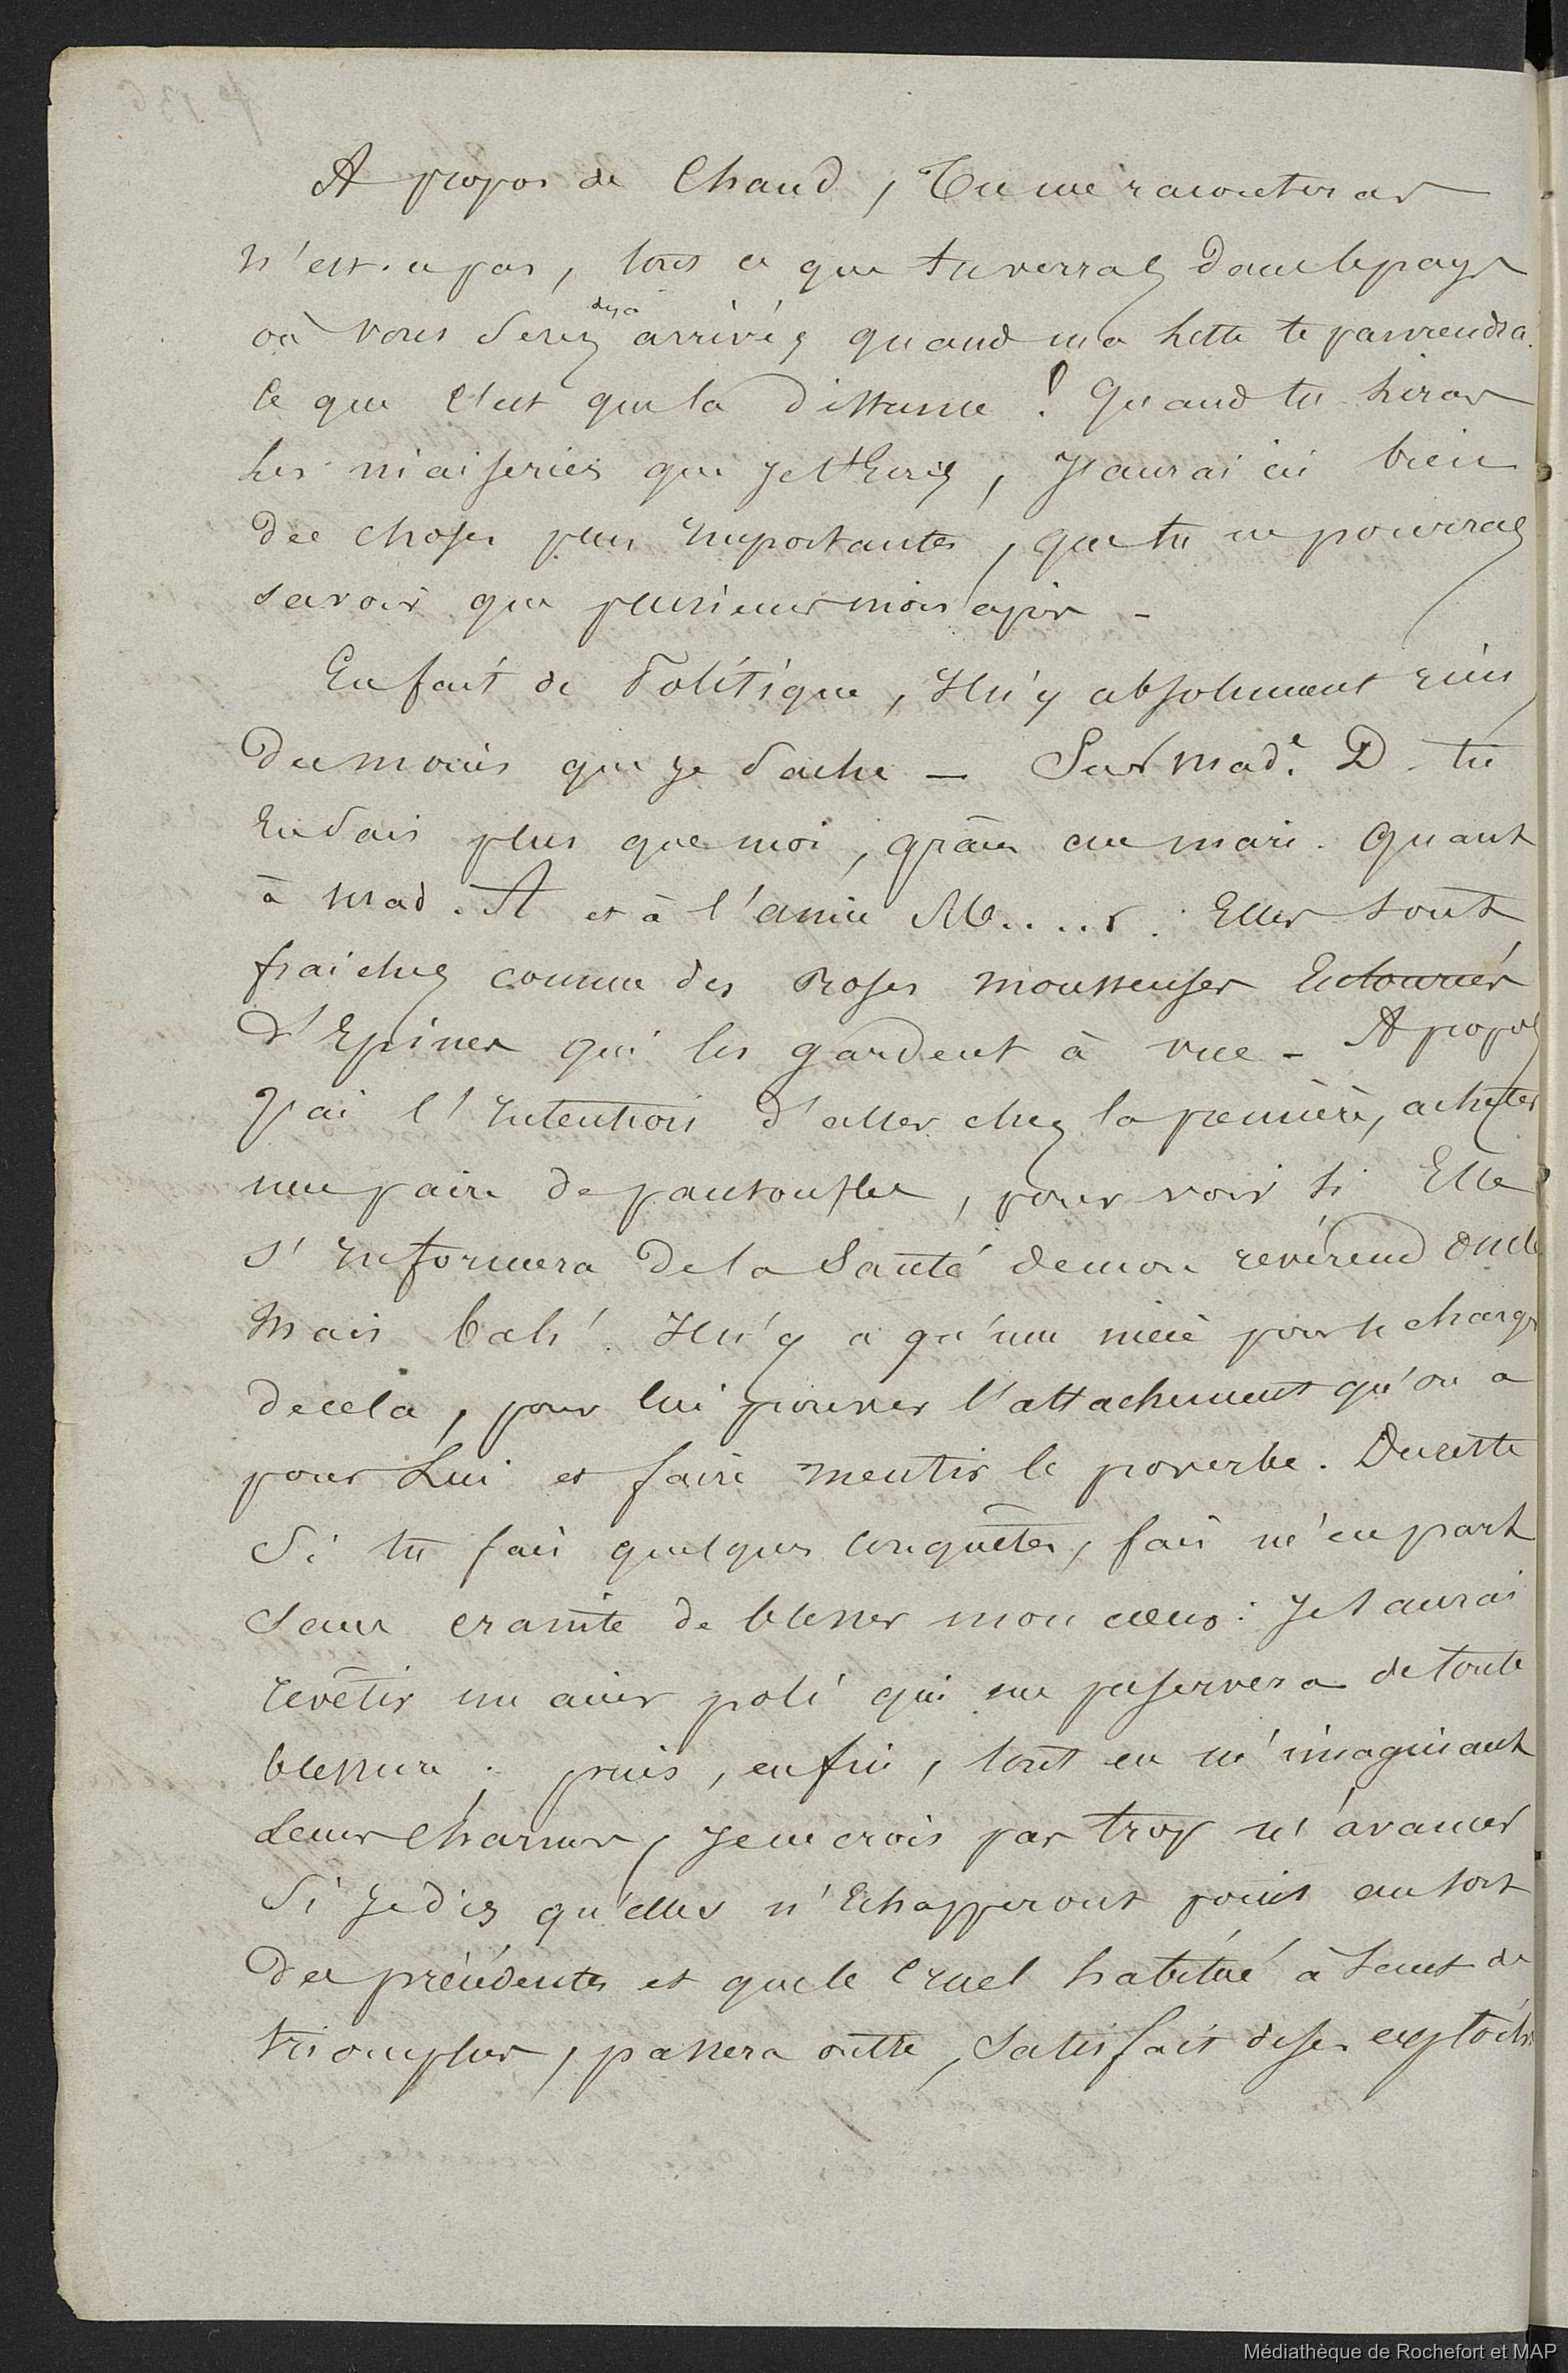 A propos de Chaud, Tu me raconteras
n'est-ce pas, tous ce que tu verras dans le pays
où vous serez déjà arrivés quand ma lettre te parviendra.
Ce que c'est que la distance ! Quand tu liras
les niaiseries que je t'Ecris, j'aurai ici bien
des choses plus importantes, que tu ne pourras
savoir que plusieurs mois après -
En fait de Politique, Il n'y absolument rien
du moins que je sache — Sur Made. D. tu
En sais plus que moi, grâce au mari. Quant
à Mad. A et à l'amie M....r. Elles sont
fraiches comme des roses mousseuses Entourées
d'Epines qui les gardent à vue - A propos
J'ai l'Intention d'aller chez la première, acheter
une paire de pantoufles, pour voir si Elle
s'Informera de la Santé de mon révérend Oncle
Mais bah ! Il n'y a qu'une nièce pour se charger
de cela, pour lui prouver l'attachement qu'on a
pour Lui et faire mentir le proverbe. Du reste
Si tu fais quelques Conquêtes, fais m'en part
Sans crainte de blesser mon cœur : Je saurai
revêtir un acier poli qui me preservera de toute
blessure. puis, enfin, tout en m'imaginant
Leurs Charmes, Je ne crois pas trop m'avancer
Si Je dis qu'elles n'Echapperont point au sort
des précédentes et que le Cruel habitué à tant de
triomphes, passera outre, Satisfait de ses exploits
Médiathèque de Rochefort et MAP